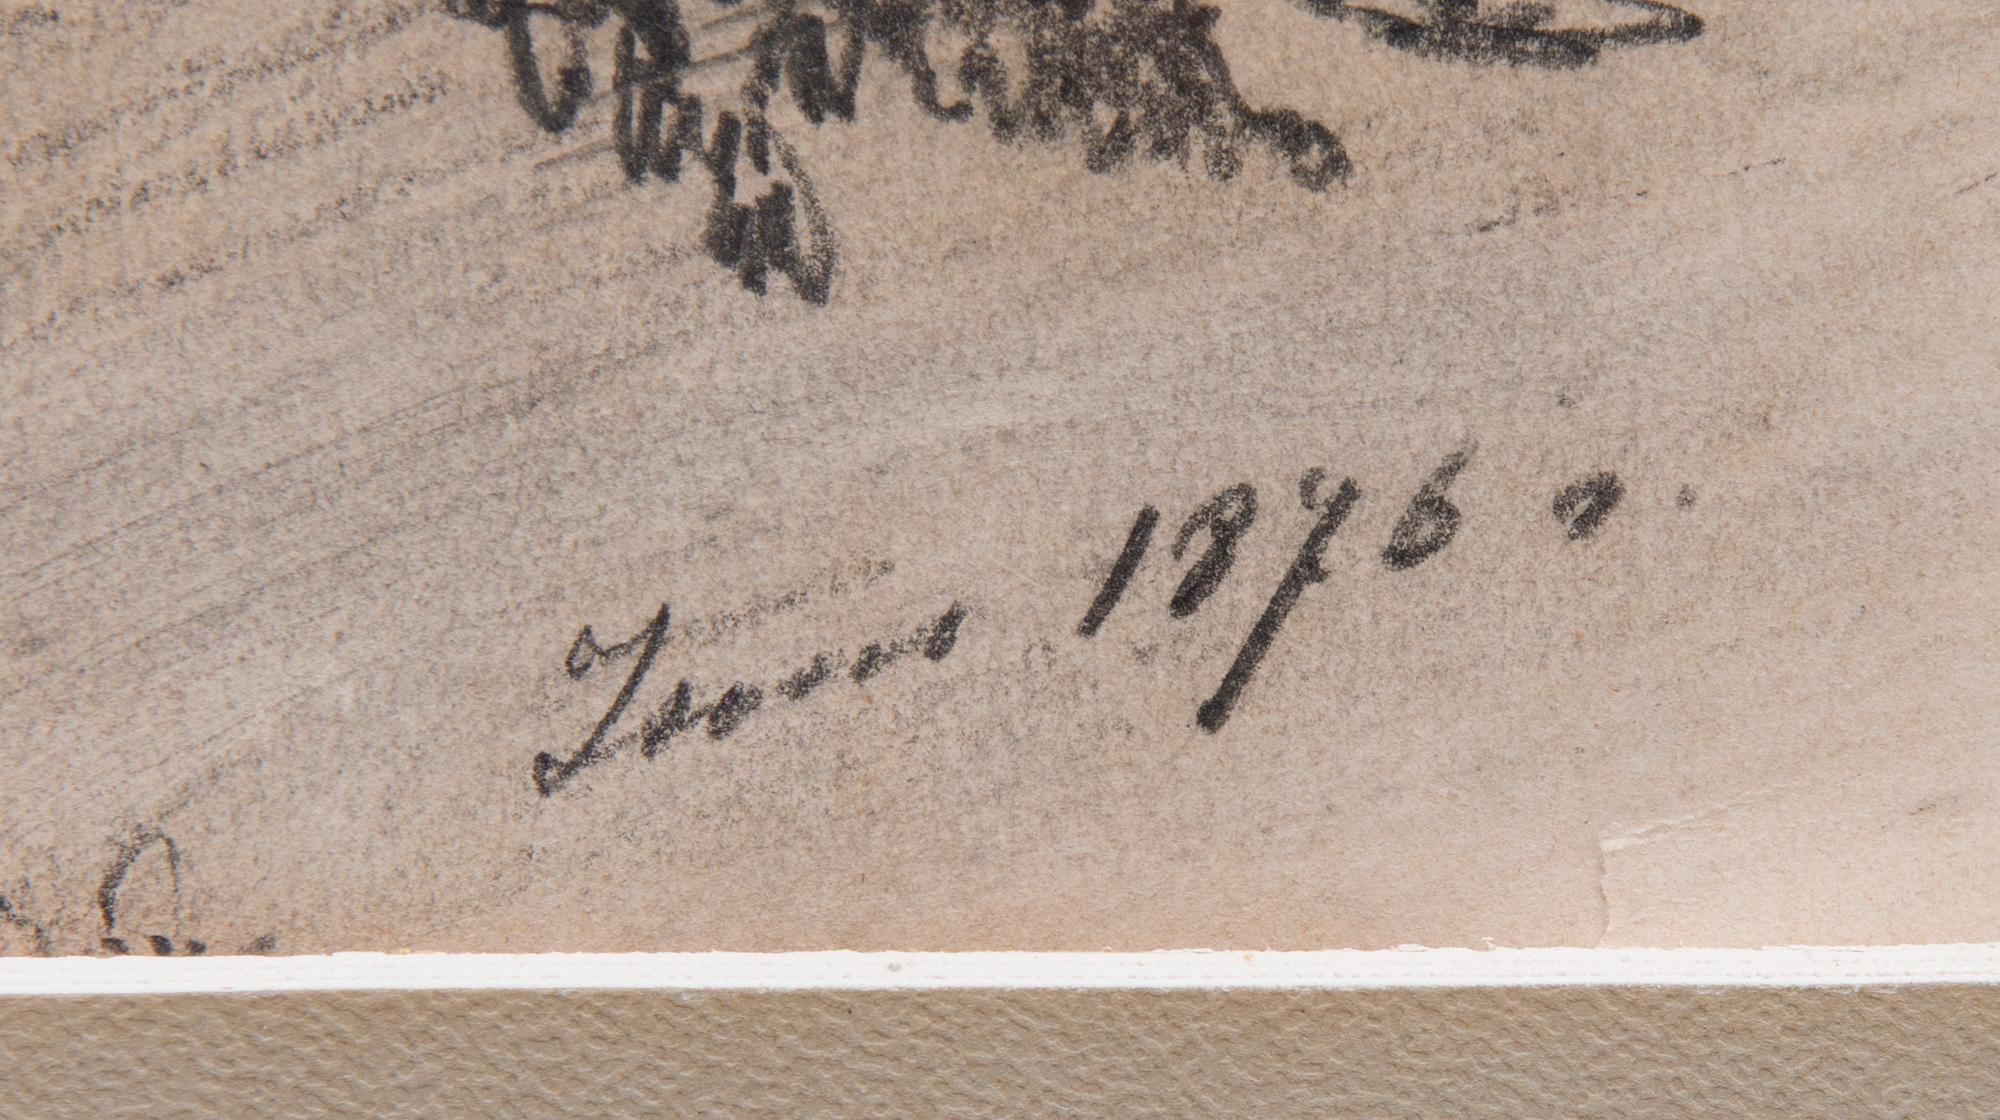 Iюнь 1876 г.